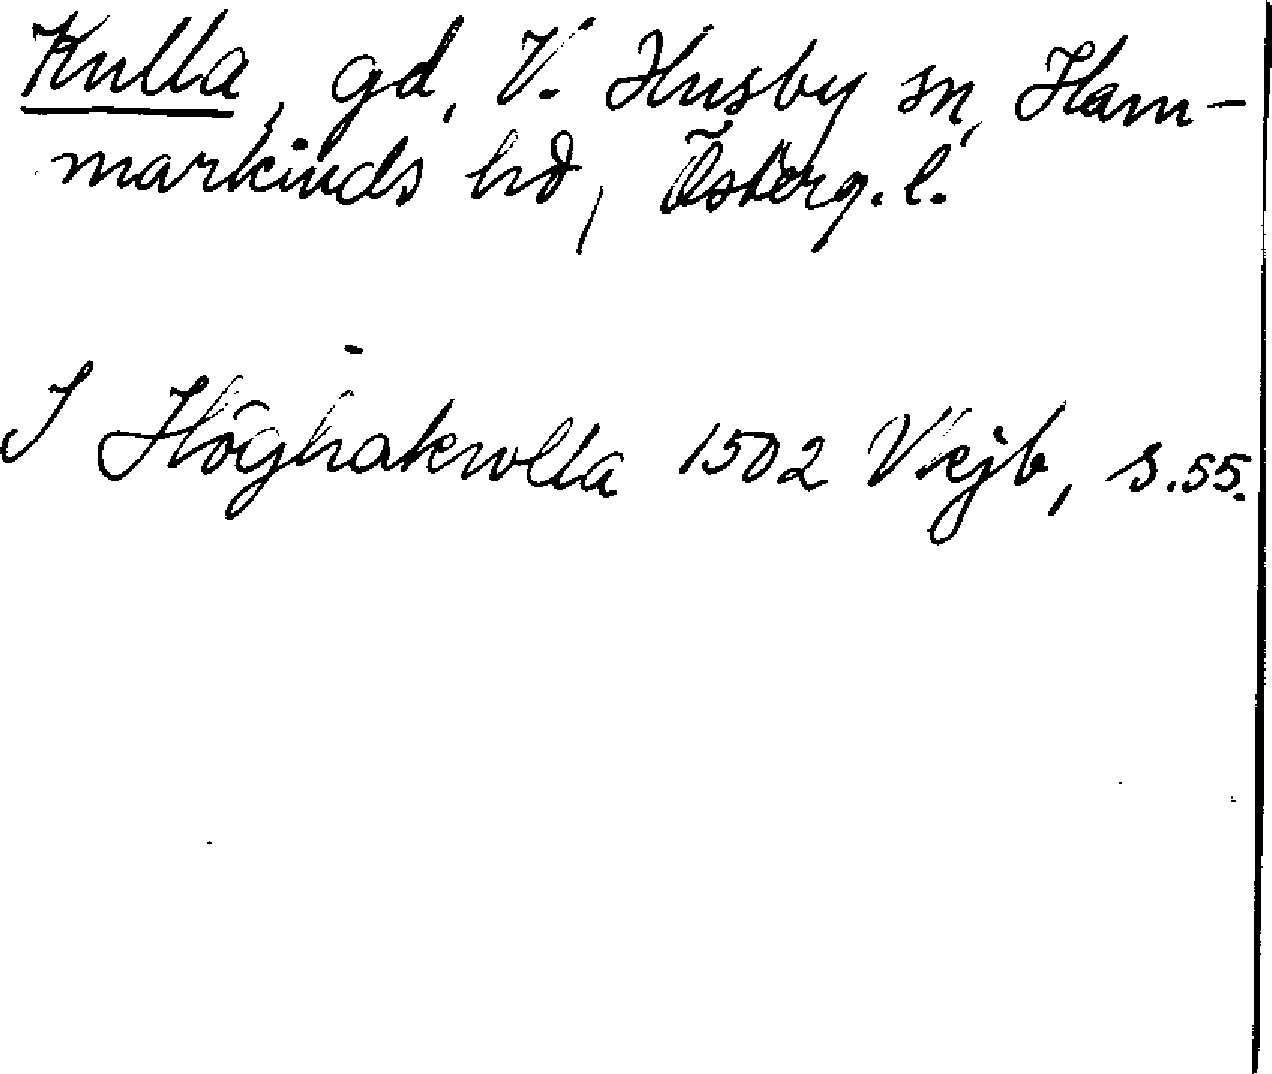 Kulla, gd, V. Husby sn, Ham-
markinds hd, Österg. l.
I Höghakwlla 1502 Vkjb, s. 55.